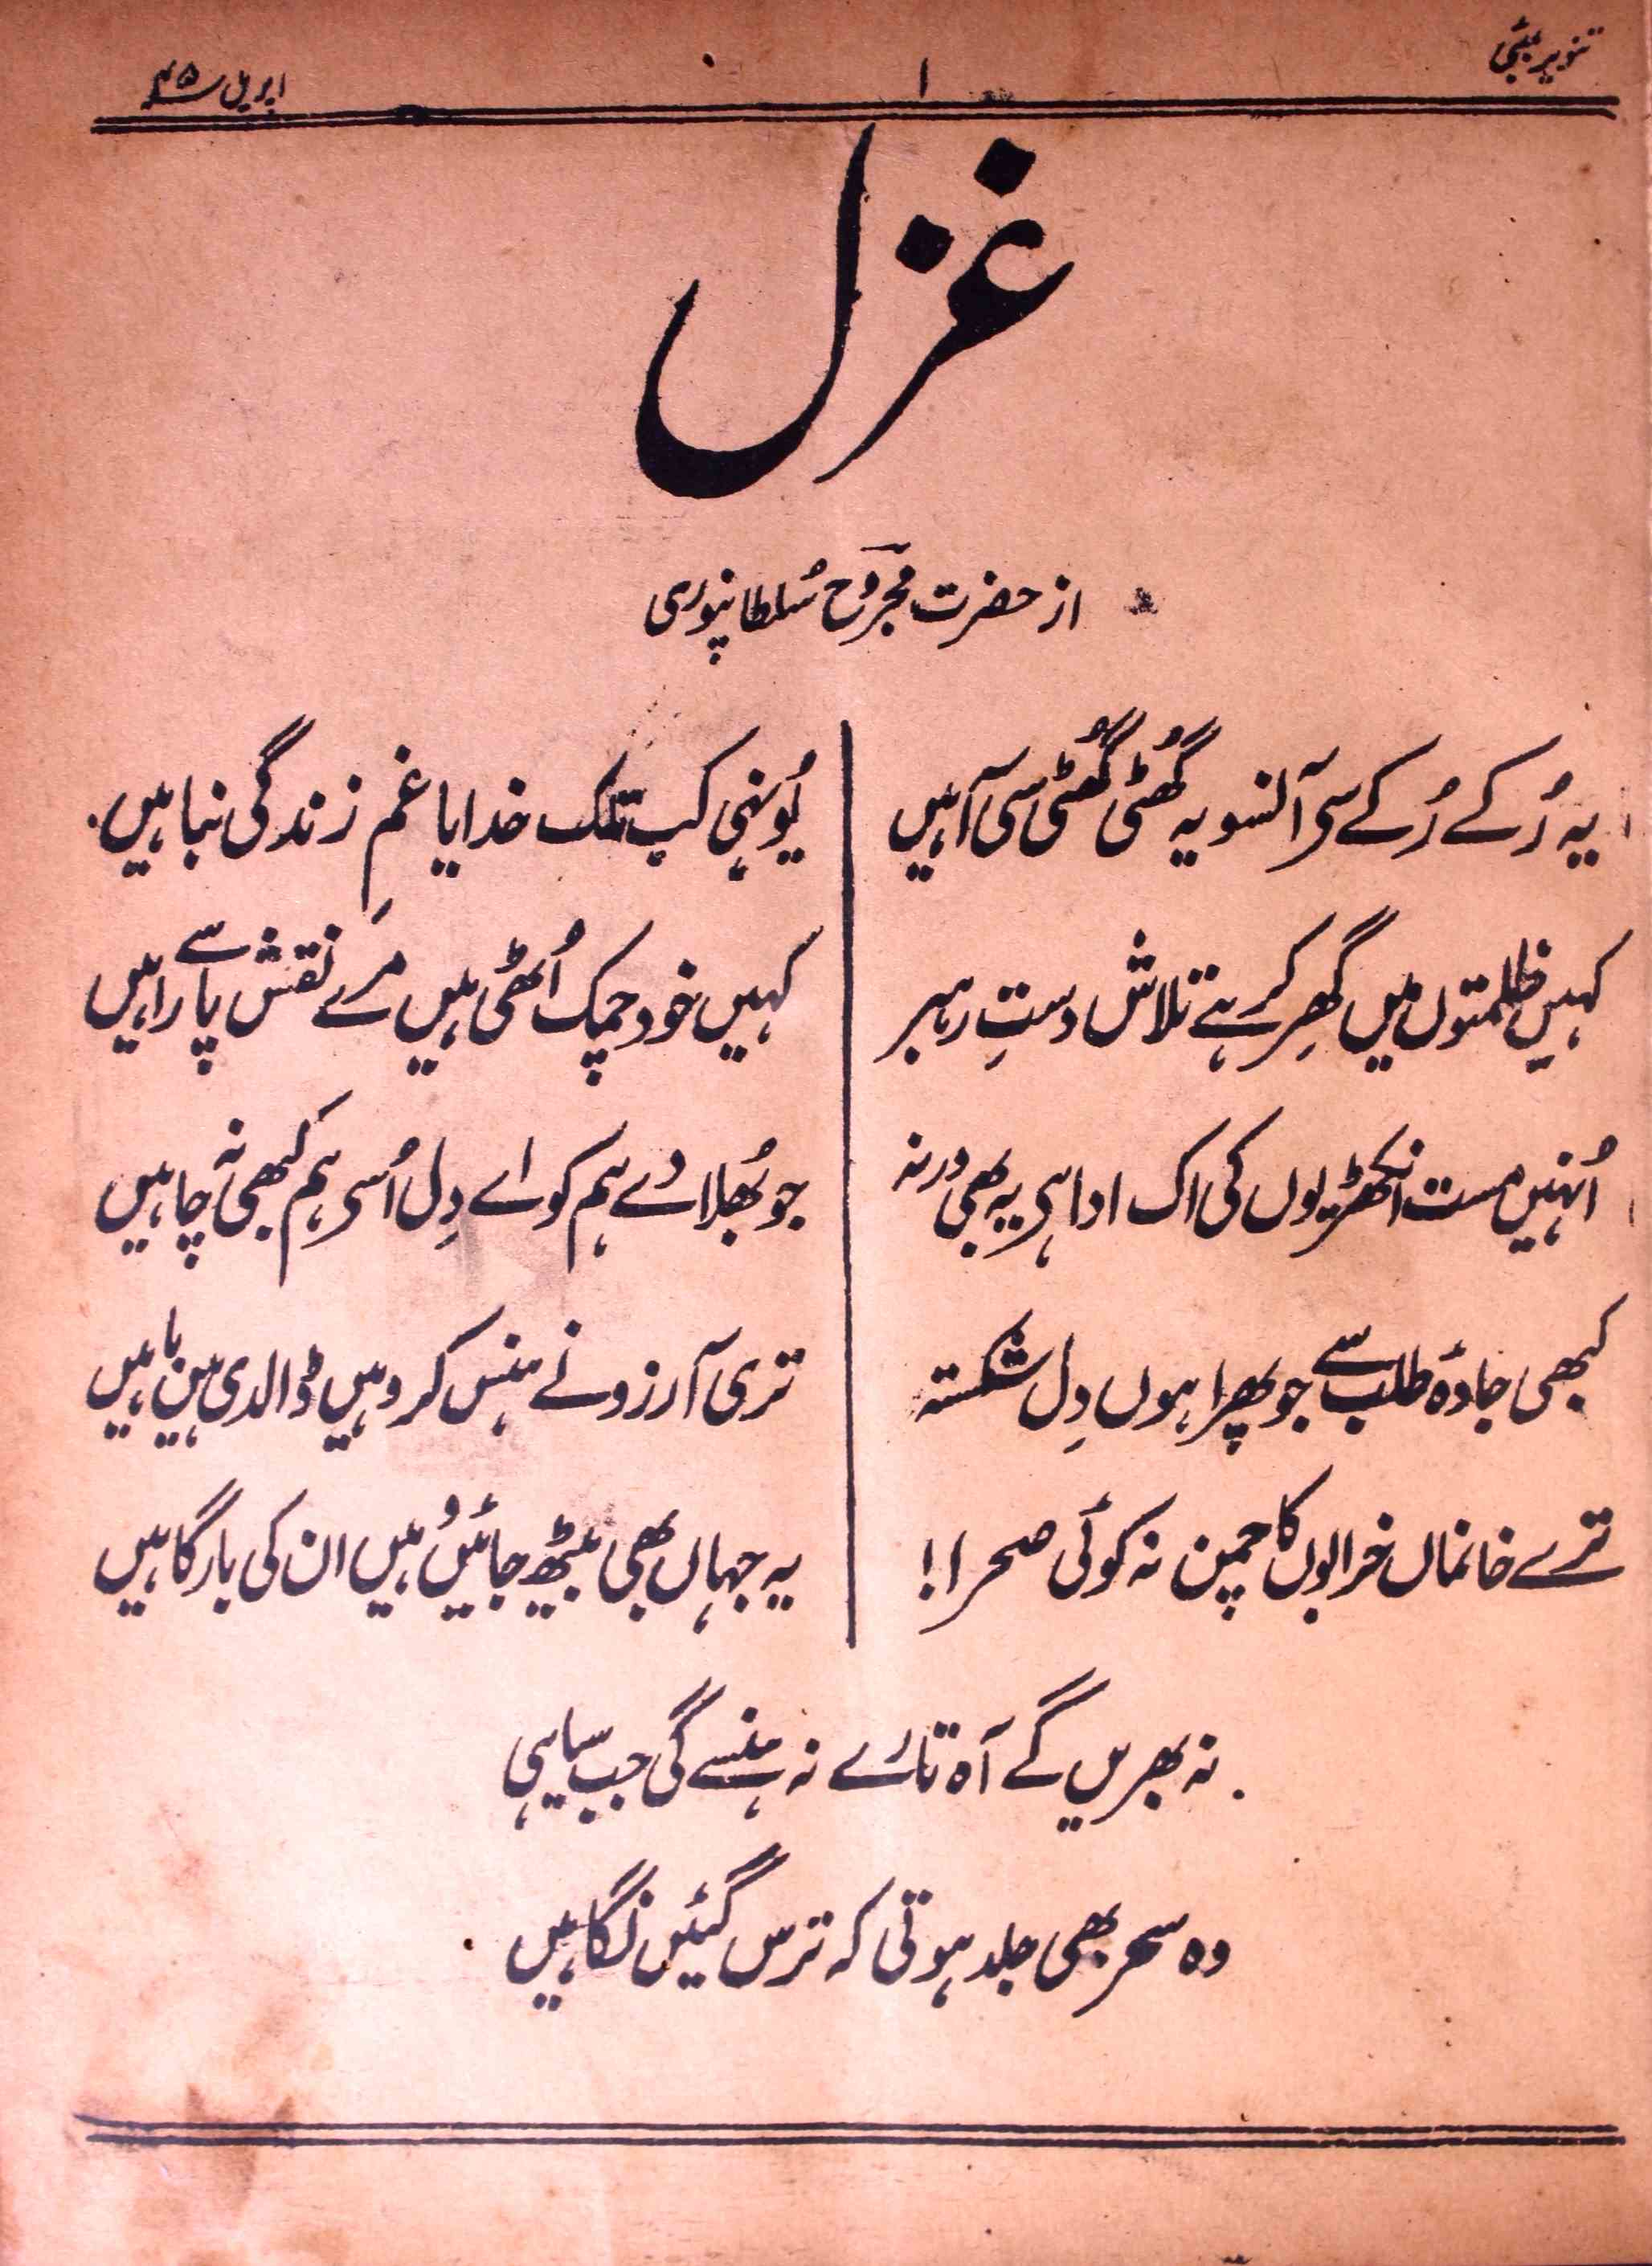 تنویر بمبئی
۱
اپریل ۴۵ء
غزل
از حضرت مجروحؔ سُلطانپوری
یہ رُکے رُکے سی آنسو یہ گھُٹی گھُٹی سی آہیں
یُونہی کب تلک خدایا غمِ زندگی نباہیں
کہیں ظلمتوں میں گھِر کر ہے تلاش دستِ رہبر
کہیں خود چمک اُٹھی ہیں مرے نقش پا سے راہیں
اُنہیں مست انکھڑیوں کی اک ادا ہی یہ بھی ورنہ
جو بھُلا دے ہم کو اے دِل اُسی ہم کبھی نہ چاہیں
کبھی جادۂ طلب سے جو پھرا ہوں دِل شکستہ
تری آرزو نے ہنس کر وہیں ڈالدی ہیں باہیں
ترے خانماں خرابوں کا چمن نہ کوئی صحرا!
یہ جہاں بھی بیٹھ جائیں وُہیں ان کی بارگاہیں
نہ بھریں گے آہ تارے نہ ہنسے گی جب سیاہی
وہ سحر بھی جلد ہوتی کہ ترس گئیں نگاہیں